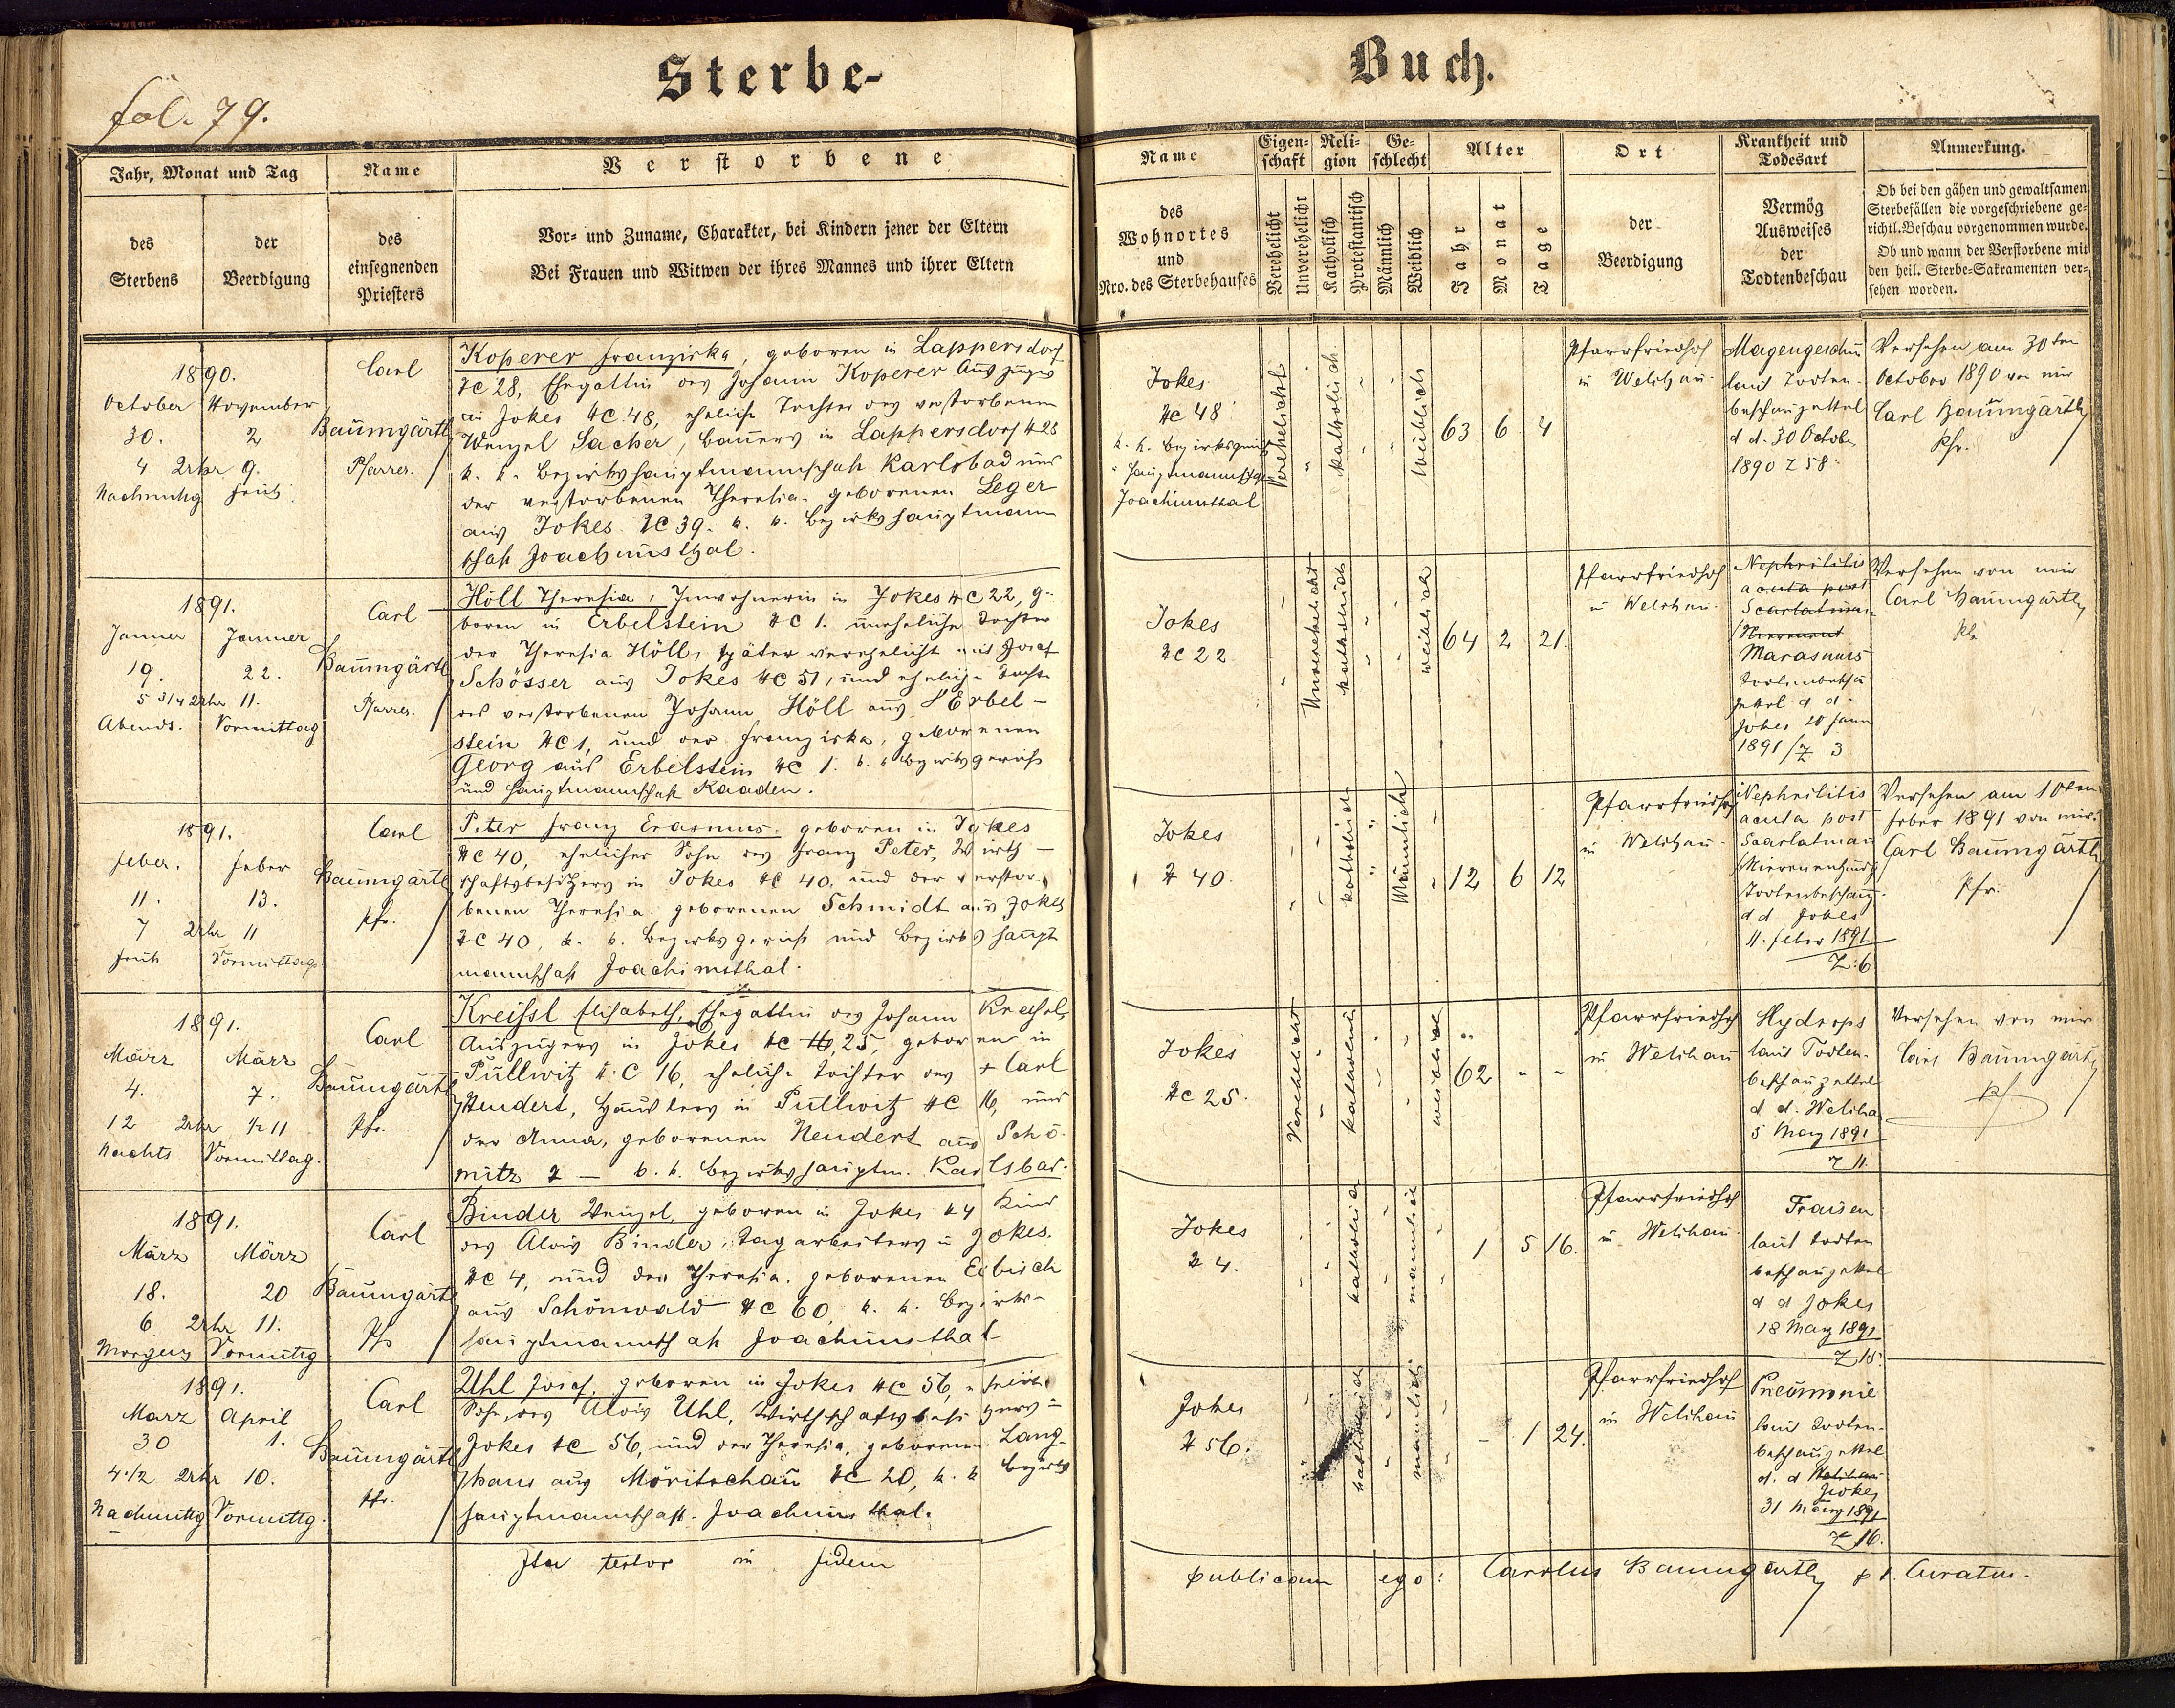 Sterbe-
Buch.
fol. 79.
Jahr, Monat und Tag
Name
Verstorbene
des
Sterbens
der
Beerdigung
des
einsegnenden
Priesters
Vor- und Zuname, Charakter, bei Kindern jener der Eltern
Bei Frauen und Witwen der ihres Mannes und ihrer Eltern
Name
des
Wohnortes
und
Nro. des Sterbehauses
Eigen-
schaft
Verehelicht
Unverehelicht
Reli-
gion
Katholisch
Protestantisch
Ge-
schlecht
Männlich
Weiblich
Alter
Jahr
Monat
Tage
Ort
der
Beerdigung
Krankheit und
Todesart
Vermög
Ausweises
der
Todtenbeschau
Anmerkung.
Ob bei den gähen und gewaltsamen
Sterbefällen die vorgeschriebene ge-
richtl. Beschau vorgenommen wurde.
Ob und wann der Verstorbene mit
den heil. Sterbe-Sakramenten ver-
sehen worden.
1890.
October November
30. 2
4 Uhr 9.
Nachmittg Früh
Carl
Baumgärtl
Pfarrer.
Koperer Franziska, geboren in Lappersdorf
NC 28, Ehegattin des Johann Koperer Auszüg
in Jokes NC 48, eheliche Tochter des verstorbenen
Wenzel Sacher, Bauers in Lappersdorf N 28
k. k. Bezirkshauptmannschaft Karlsbad und
der verstorbenen Theresia geborenen Leger
aus Jokes NC 39. k. k. Bezirkshauptmann
schaft Joachimsthal.
Jokes
NC 48
k. k. Bezirksgericht
Hauptmannschaft
Joachimsthal
Verehelicht
katholisch
Weiblich
63 6 4
Pfarrfriedhof
in Welchau
Magengeschw
laut Todten-
beschauzettel
d d. 30 October
1890 Z 58.
Versehen am 30ten
October 1890 von mir
Carl Baumgärtl
Pfr.
1891.
Jänner Jänner
19. 22.
5 3/4 Uhr 11.
Abends. Vormittag
Carl
Baumgärtl
Pfarrer.
Höll Theresia, Inwohnerin in Jokes NC 22, ge-
boren in Erbelstein NC 1. uneheliche Tochter
der Theresia Höll, später verehelicht mit Josef
Schösser aus Jokes NC 51, und eheliche Tochter
des verstorbenen Johann Höll aus Erbel-
stein NC 1, und der Franziska, geborenen
Georg aus Erbelstein NC 1. k. k Bezirksgericht
und Hauptmannschaft Kaaden.
Jokes
NC 22
Unverehelicht
katholisch
weiblich
64 2 21.
Pfarrfriedhof
in Welchau.
Nephrilitis
acuta post
Scarlatina
Marasmus
Todtenbeschau
zettel d d
Jokes 20 Jänn
1891/Z 3
Versehen von mir
Carl Baumgärtl
Pfr
1891.
Feber. Feber
11. 13.
7 Uhr 11
Früh Vormittag
Carl
Baumgärtl
Pfr.
Peter Franz Erasmus geboren in Jokes
NC 40, ehelicher Sohn des Franz Peter, Wirth-
schaftsbesitzers in Jokes NC 40. und der verstor-
benen Theresia geborenen Schmidt aus Jokes
NC 40, k. k. Bezirksgericht und Bezirks haupt
mannschaft Joachimsthal.
Jokes
N 40.
katholisch
Männlich
12 6 12
Pfarrfriedhof
in Welchau.
Nephrilitis
acuta post
Scarlatinan
Nierenentzünd
Todtenbeschauz.
d d Jokes
11. Feber 1891
Z. 6
Versehen am 10ten
Feber 1891 von mir.
Carl Baumgärtl
Pfr.
1891.
März März
4. 7.
12 Uhr 1/2 11
Nachts Vormittag.
Carl
Baumgärtl
Pfr.
Kreissl Elisabeth, Ehegattin des Johann Kreissl,
Auszügers in Jokes NC 25, geboren in
Pullwitz N. C 16, eheliche Tochter des + Carl
Hendert, Häuslers in Pullwitz NC 16, und
der Anna, geborenen Hendert aus Schö-
mitz N — k. k. Bezirkshauptm. Karlsbad.
Jokes
NC 25.
Verehelicht
katholisch
weiblich
62 - -
Pfarrfriedhof
in Welchau
Hydrops
laut Todten-
beschauzettel
d d. Welchau
5 März 1891
Z 11.
Versehen von mir
Carl Baumgärtl
Pf
1891.
März März
18. 20
6 Uhr 11.
Morgens Vormittg
Carl
Baumgärtl
Pfr
Binder Wenzel, geboren in Jokes N 4 Kind
des Alois Binder, Tagarbeiters in Jokes.
NC 4, und der Theresia, geborenen Eibisch
aus Schönwald NC 60, k. k. Bezirks-
hauptmannschaft Joachimsthal
Jokes
N 4.
katholisch
männlich
1 5 16.
Pfarrfriedhof
in Welchau
Fraisen
laut Todten
beschauzettel
d d Jokes
18 März 1891
Z 15.
1891.
März April
30 1.
4 1/2 Uhr 10.
Nachmittg Vormittg.
Carl
Baumgärtl
Pfr.
Uhl Josef, geboren in Jokes NC 56, ehelich
Sohn des Alois Uhl, Wirthschaftsbesitzers in
Jokes NC 56, und der Theresia, geborenen Lang-
hans aus Möritschau NC 20, k. k Bezirks
hauptmannschaft Joachimsthal.
Jokes
N 56.
katholisch
männlich
- 1 24.
Pfarrfriedhof
in Welchau
Pneumonie
laut Todten-
beschauzettel
d. d Welchau
Jokes
31 März 1891
Z 16.
Ita testor in fidem
publicam ego: Carolus Baumgärtl, p t. Curatus.